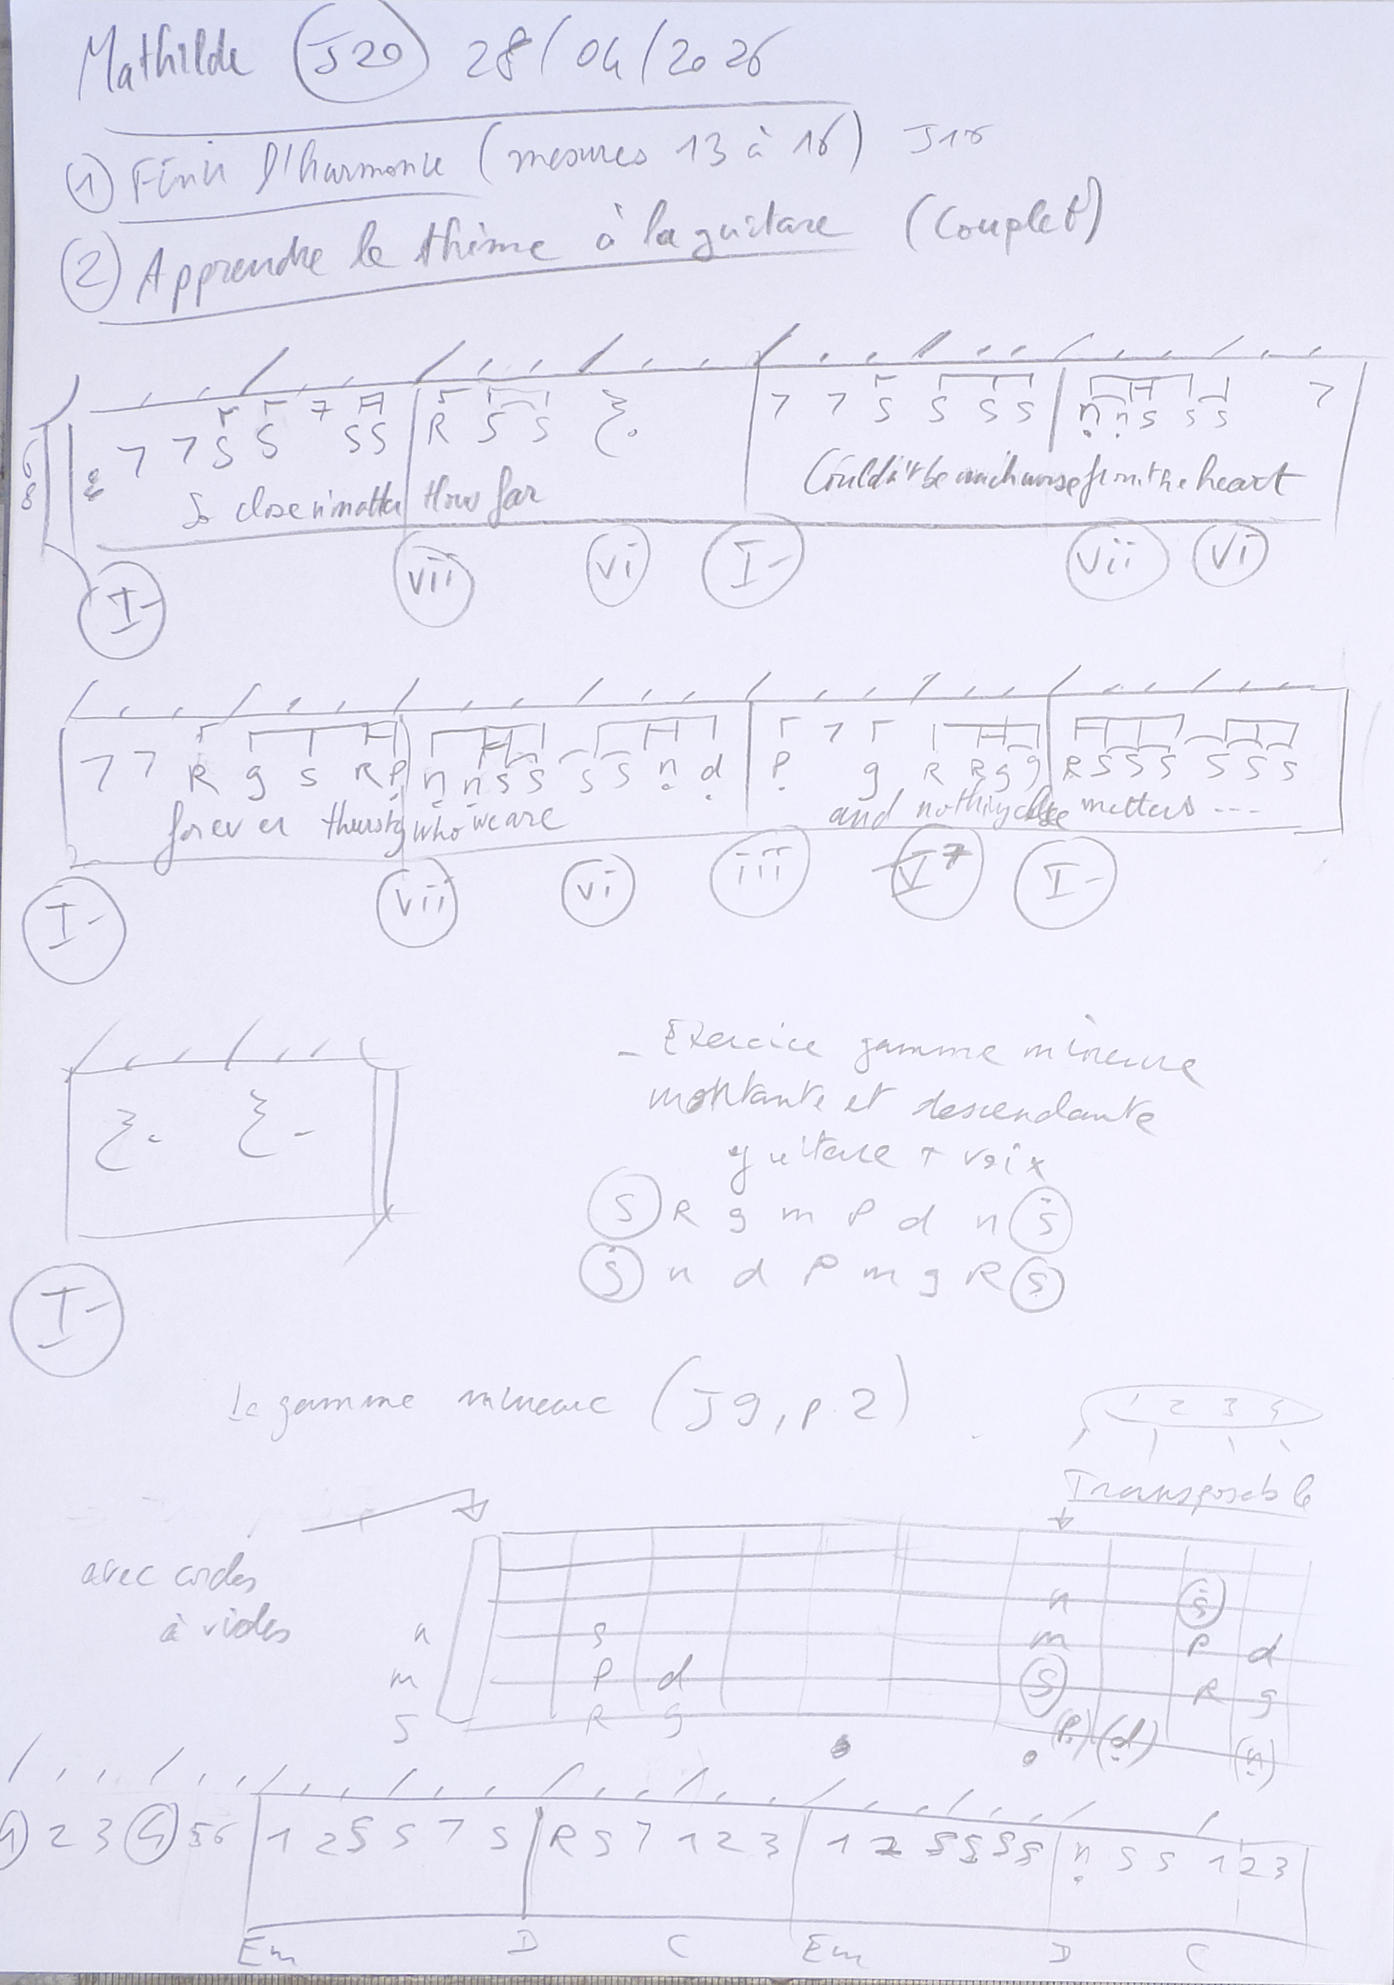 Mathilde J20 28/04/2026
① Finir l'harmonie (mesures 13 à 16) J16
② Apprendre le thème à la guitare (couplet)
6
8
7 7 S S 7 S S R S S 7 7 S S S S n n S S S 7
So close n'matter how far Couldn't be much more from the heart
I- vii vi I- vii vi
7 7 R g S R P n n S S S S n d P 7 g R R g g R S S S S S S
forever thursty who we are and nothing else matters ---
I- vii vi iii V7 I-
- Exercice gamme mineure
montante et descendante
guitare + voix
S R g m P d n S
S n d P m g R S
I-
la gamme mineure (J9, p.2)
1 2 3 4
Transposable
avec cordes
à vides
n S
n S m P d
m P d S R g
S R g (P) (d) (n)
1 2 3 4 5 6 1 2 S S 7 S R S 7 1 2 3 1 2 S S S S n S S 1 2 3
Em D C Em D C